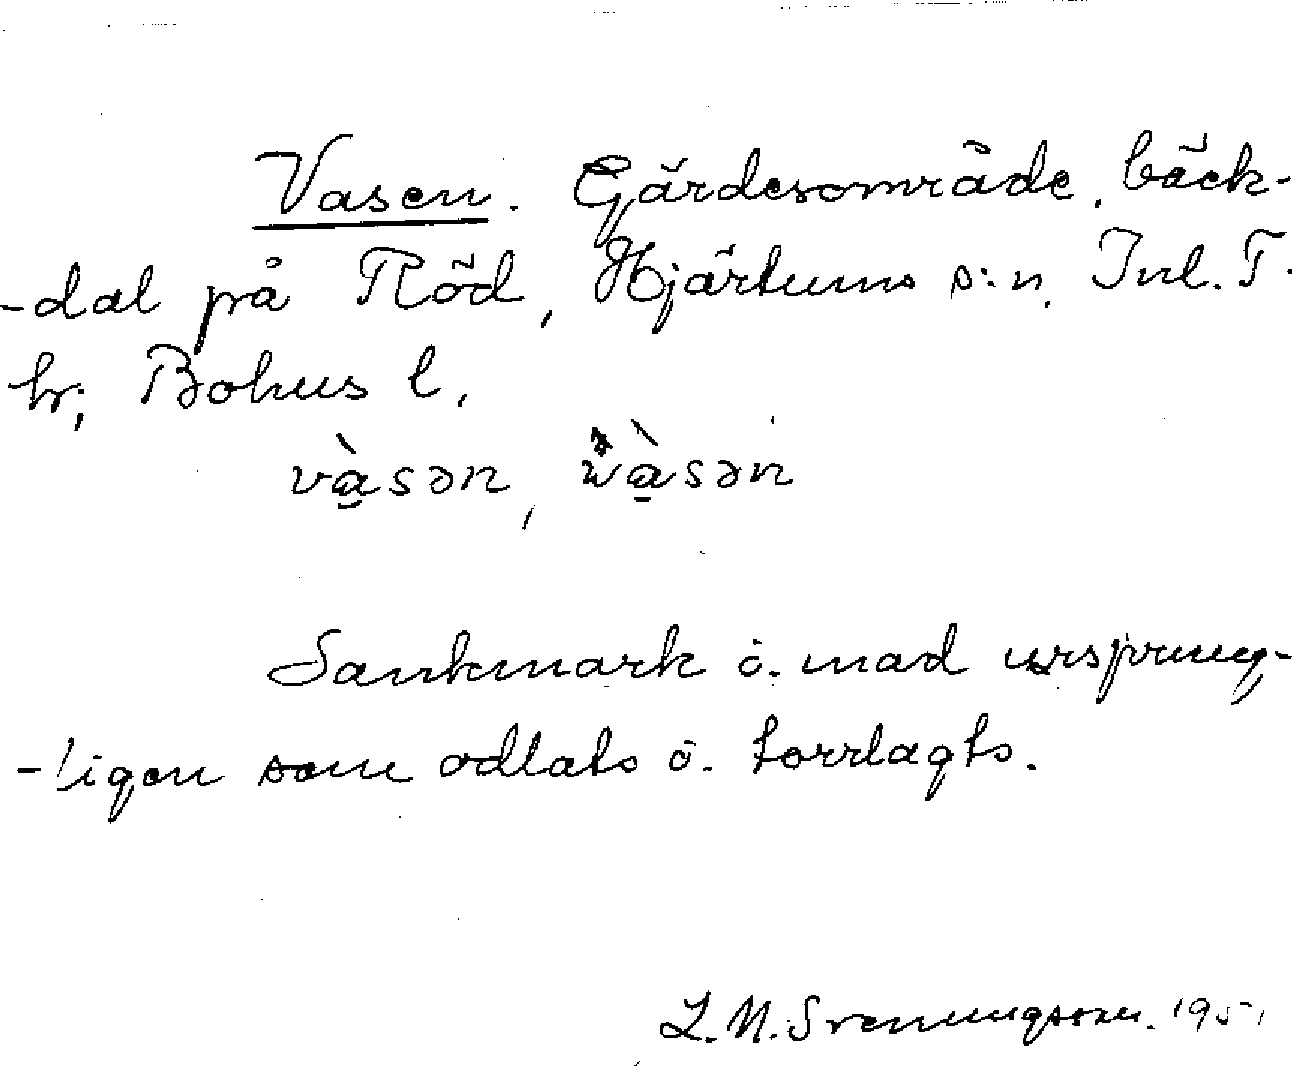 Vasen. Gärdesområde, bäck-
-dal på Röd, Hjärtums s:n, Inl. T.
hr; Bohus l.
và̱sən, wà̱sən
Sankmark o. mad ursprung-
-ligen som odlats o. torrlagts.
L. M. Svenungsson. 1951